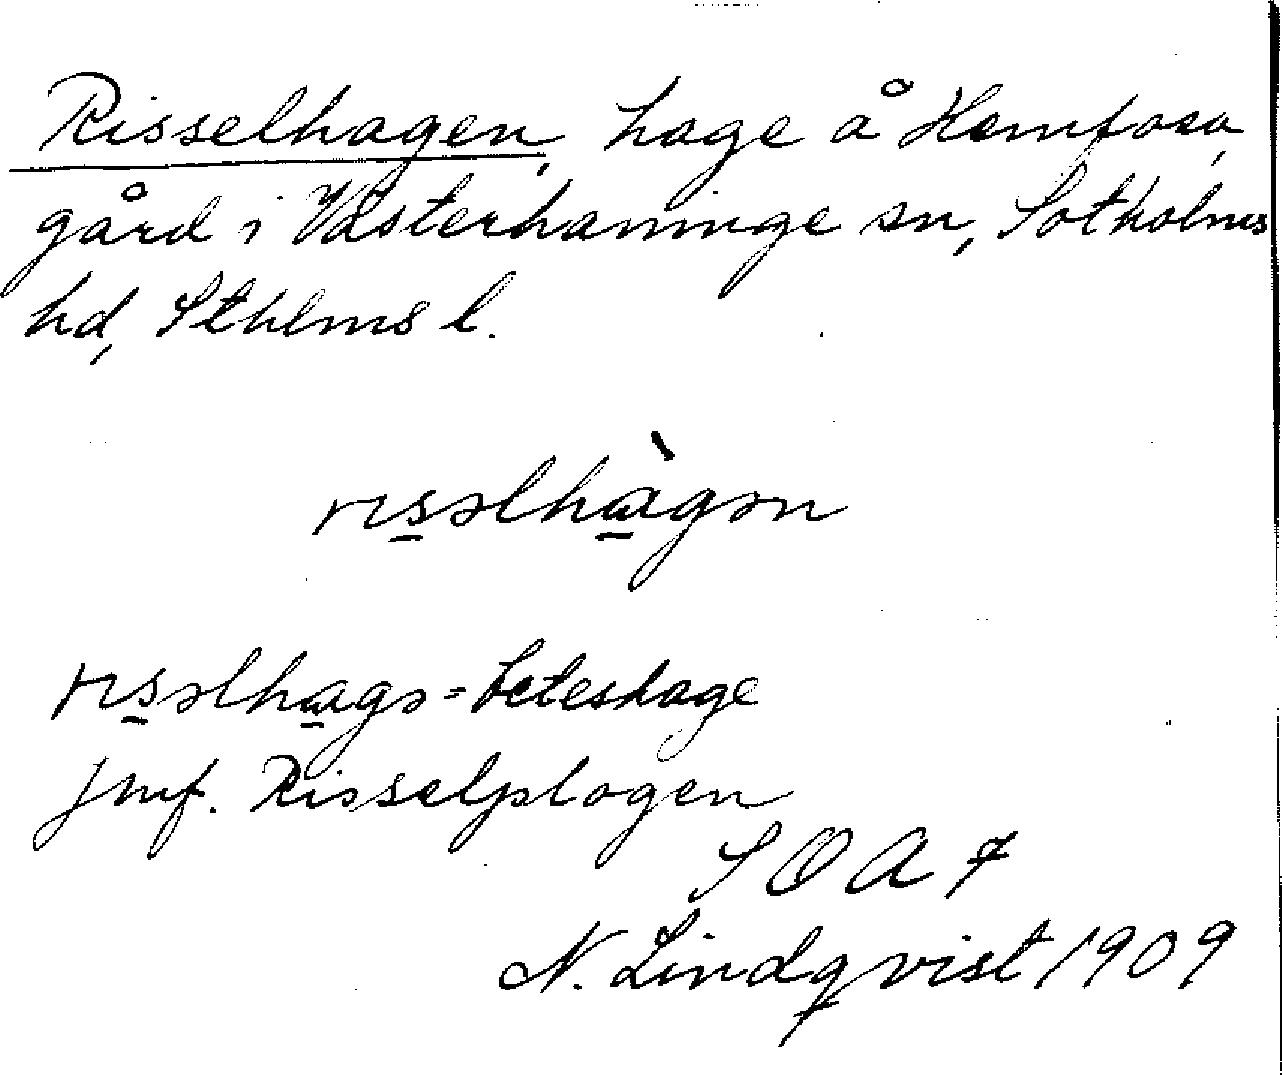 Risselhagen, hage å Hemfosa
gård i Västerhaninge sn, Sotholms
hd, Sthlms l.
rıs̲əlhɑ̲̀gən
rıs̲əlhɑ̲gə = beteshage
jmf. Risselplogen
SOA 7
N. Lindqvist 1909